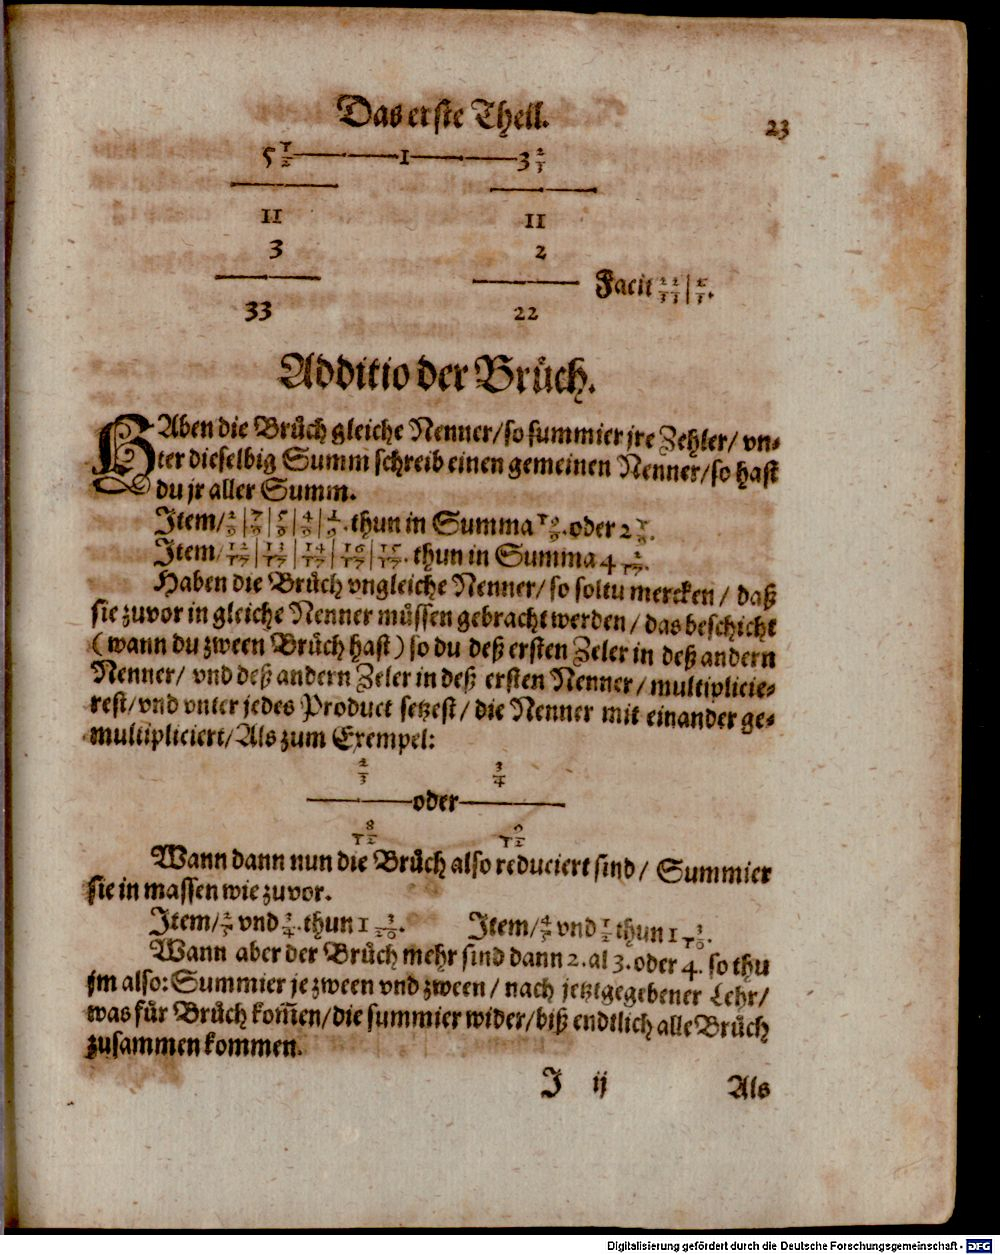 Das erste Theil.
23
5 1/2 — 1 — 3 2/3
11 11
3 2
33 22 Facit 22/33 | 2/3.
Additio der Brůch.
HAben die Brůch gleiche Nenner/ so summier jre Zehler/ vn⸗
ter dieselbig Summ schreib einen gemeinen Nenner/ so hast
du jr aller Summ.
Item/ 2/9 | 7/9 | 5/9 | 4/9 | 1/9. thun in Summa 19/9. oder 2 1/9.
Item/ 12/17 | 13/17 | 14/17 | 16/17 | 15/17. thun in Summa 4 2/17.
Haben die Brůch vngleiche Nenner/ so soltu mercken / daß
sie zuvor in gleiche Nenner můssen gebracht werden / das beschicht
( wann du zween Brůch hast ) so du deß ersten Zeler in deß andern
Nenner/ vnd deß andern Zeler in deß ersten Nenner / multiplicie⸗
rest/ vnd vnter jedes Product setzest/ die Nenner mit einander ge⸗
multipliciert/ Als zum Exempel:
2/3 3/4
oder
8/12 9/12
Wann dann nun die Brůch also reduciert sind / Summier
sie in massen wie zuvor.
Item/ 2/5 vnd 3/4. thun 1 3/20. Item/ 4/5 vnd 1/2 thun 1 3/10.
Wann aber der Brůch mehr sind dann 2. al 3. oder 4. so thu
jm also: Summier je zween vnd zween / nach jetztgegebener Lehr/
was fůr Brůch kom̃en/ die summier wider/ biß endtlich alle Brůch
zusammen kommen.
J ij Als
Digitalisierung gefördert durch die Deutsche Forschungsgemeinschaft - DFG